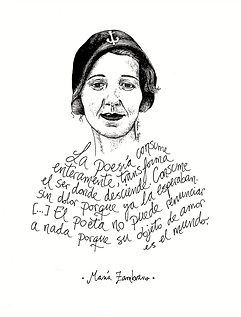 La poesía consume
enteramente, transforma
el ser donde desciende. Consume
sin dolor porque ya la esperaban.
[...] El poeta no puede renunciar
a nada porque su objeto de amor
es el mundo.
· María Zambrano ·